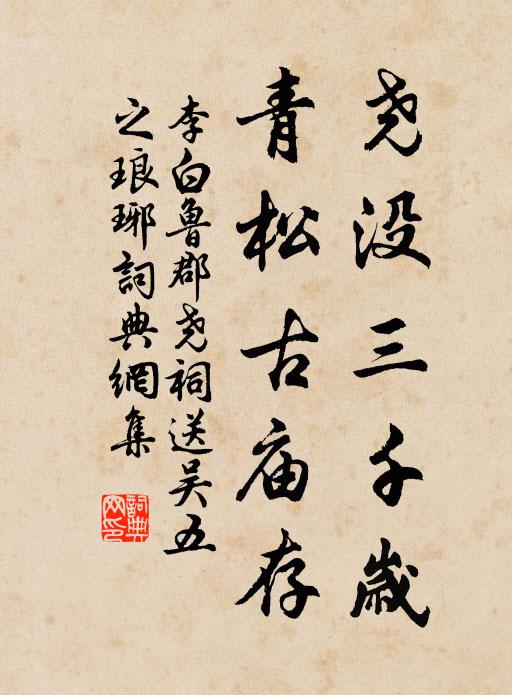 尧没三千歲
青松古庙存
李白魯郡尧祠送吴五
之琅琊詞典網集
詞典
网印